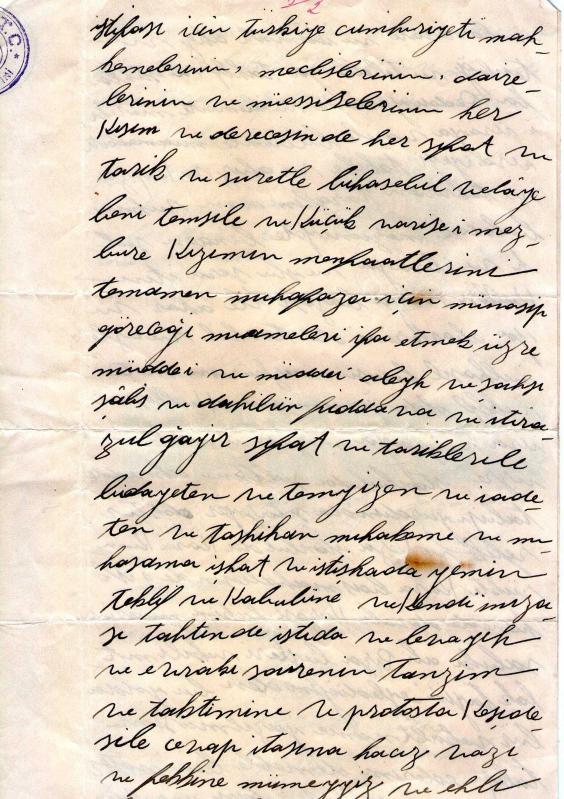 2
T.C.
için türkiye cumhuriyeti mah-
kemelerinin, meclislerinin, daire-
lerinin ve müessiselerinin her
kısım ve derecesinde her sıfat ve
tarik ve suretle bihasebil velâye
beni temsile ve küçük varise i mez-
bure kızımın menfaatlerini
temamen muhafaza için münasip
göreceği muameleri ifa etmek üzre
müddei ve müddei aleyh ve şahsı
salis ve dahilün fiddava ve itira-
zul gayir sıfat ve tariklerile
bidayeten ve temyizen ve iade-
ten ve tashihan muhakeme ve mu-
hasama işhat ve istişhada yemin
teklif ve kabulüne ve kendi imza-
sı tahtinde istida ve levayih
ve evrakı sairenin tanzim
ve takdimine ve protosto keşide-
sile cevap itasına haciz vazi
ve fekkine mümeyyiz ve ehli